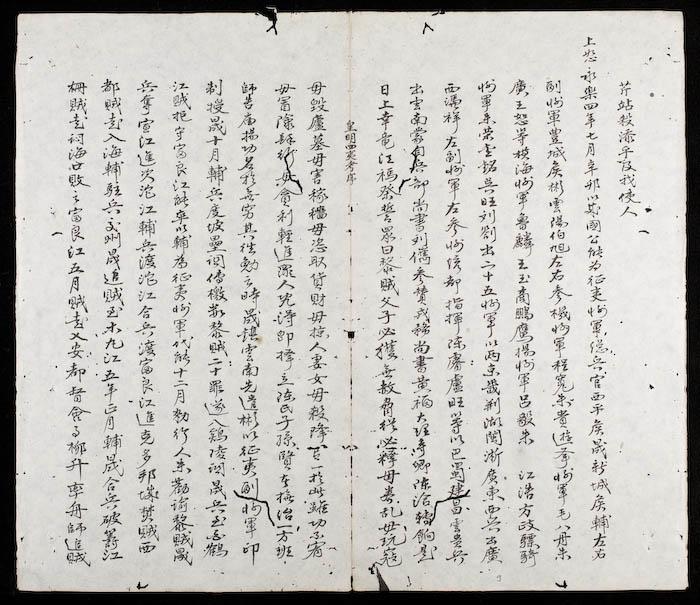 芹站殺添平及我使人
上怒永樂四年七月辛卯以國公能为征夷將軍總兵官西平侯晟新城侯輔左右
副將軍豐城侯彬雲陽伯旭左右參將軍程寬朱貴遊擊將軍毛八丹朱
廣王恕等橫海將軍魯麟王玉商鵬鷹揚將軍呂毅朱 江浩方政驃騎
將軍朱榮金銘吳旺刘劄出二十五將軍以兩京畿荊湖閩浙廣東西兵出廣
西憑祥左副將軍左參將統都指揮陳濬盧旺等以巴蜀建昌雲貴兵
出雲南蒙自兵部尚書刘儁參贊戎務尚書黃福大理寺卿陳洽轉餉是
日上幸竜江禡祭誓眾曰黎賊父子必獲無赦脅從必釋毋養乱毋玩寇
皇明四夷考序
毋毀廬墓毋害稼穡毋恣取貨財毋掠人妻女毋殺降有一於此雖功不宥
毋冒險肆行毋貪利輕進罪人既得即擇立陳氏子孫賢在撫治一方班
師告廟揚功名於無窮其往勉之時晟鎮雲南先遣彬以征夷副將軍印
制授晟十月輔兵度坡壘関傳檄數黎賊二十罪遂入鷄陵関晟兵至白鶴
江賊拒守富良江能卒以輔為征夷將軍代能十二月勑行人朱勸諭黎賊晟
兵奪宣江進次沱江輔兵渡沱江合兵渡富良江進克多邦城焚賊西
都賊走入海輔駐兵交州晟追賊至木九江五年正月輔晟合兵破籌江
柵賊走海口敗之富良江五月賊走乂安都督僉事柳升率舟師追賊